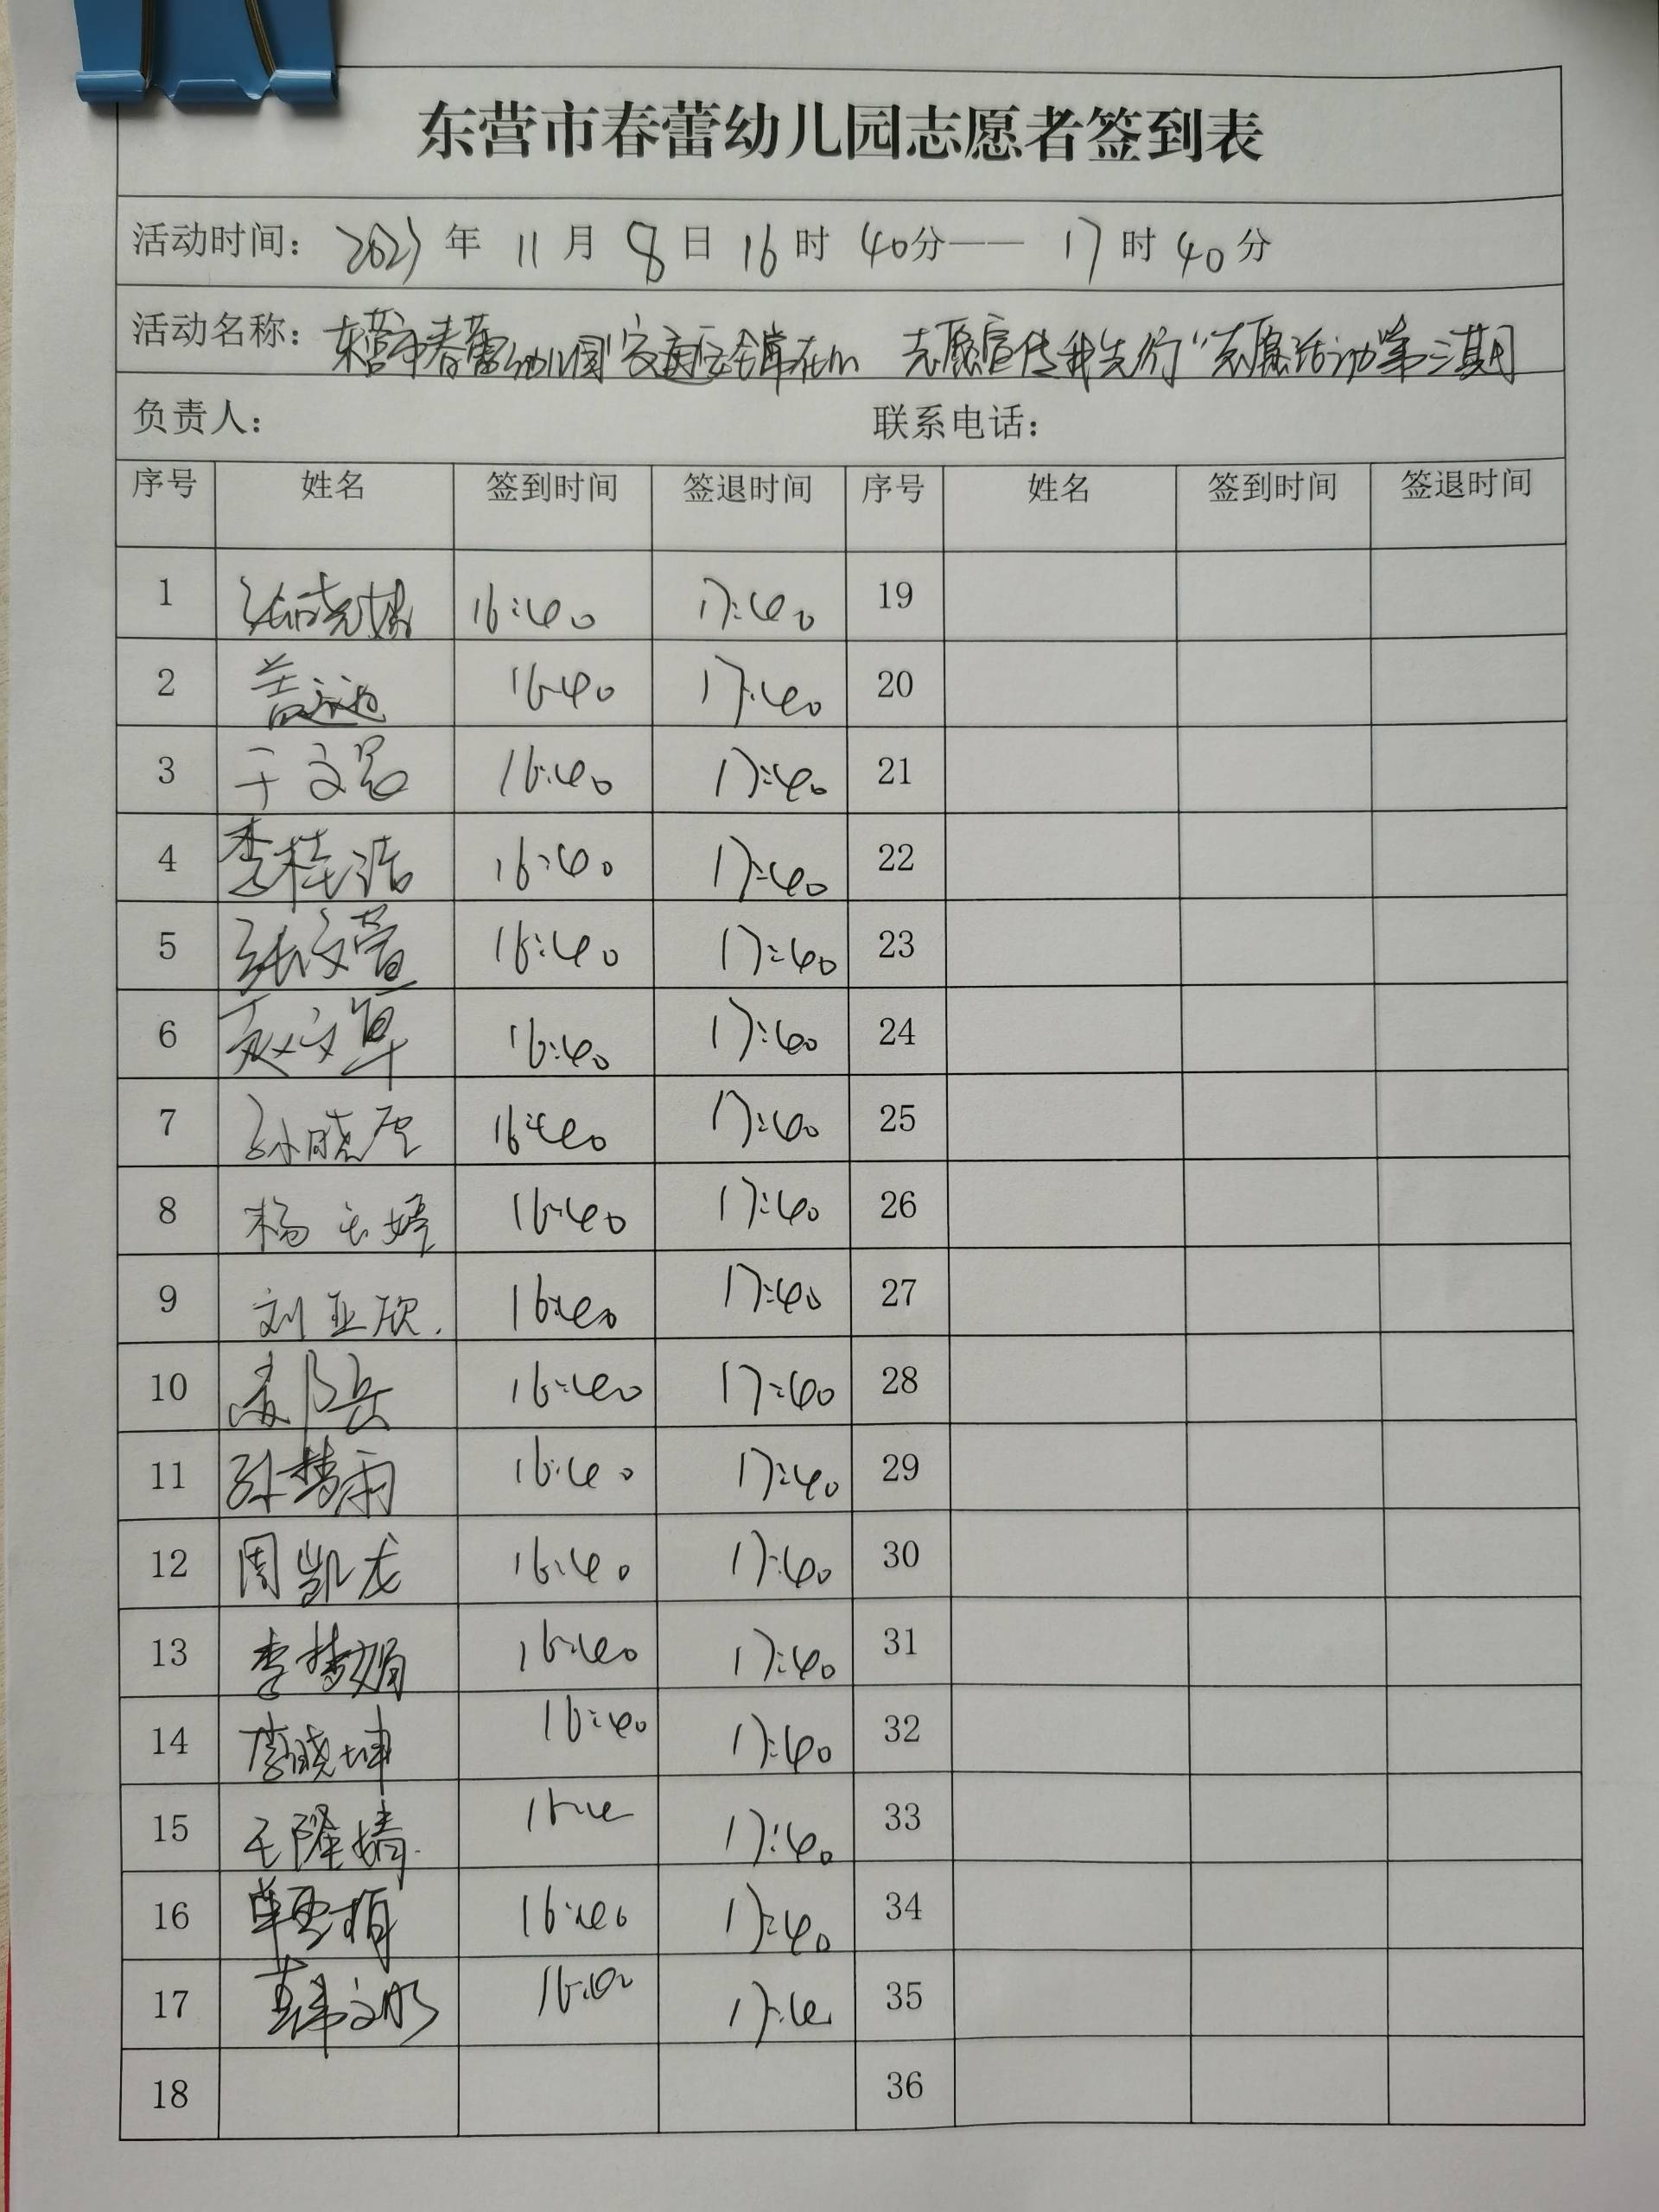 东营市春蕾幼儿园志愿者签到表
活动时间：2023年 11月 8日 16时 40分—— 17时 40分
活动名称：东营市春蕾幼儿园"交通安全常在心 志愿宣传我先行"志愿活动第三期
负责人： 联系电话：
序号 姓名 签到时间 签退时间 序号 姓名 签到时间 签退时间
1 16:40 17:40 19
2 16:40 17:40 20
3 于文 16:40 17:40 21
4 李桂浩 16:40 17:40 22
5 张文萱 16:40 17:40 23
6 赵文 16:40 17:40 24
7 孙晓雪 16:40 17:40 25
8 杨玉婷 16:40 17:40 26
9 刘亚欣. 16:40 17:40 27
10 16:40 17:40 28
11 孙梦雨 16:40 17:40 29
12 周凯龙 16:40 17:40 30
13 李梦娟 16:40 17:40 31
14 李晓坤 16:40 17:40 32
15 王隆婧 17:40 33
16 16:40 17:40 34
17 16:40 17:40 35
18 36